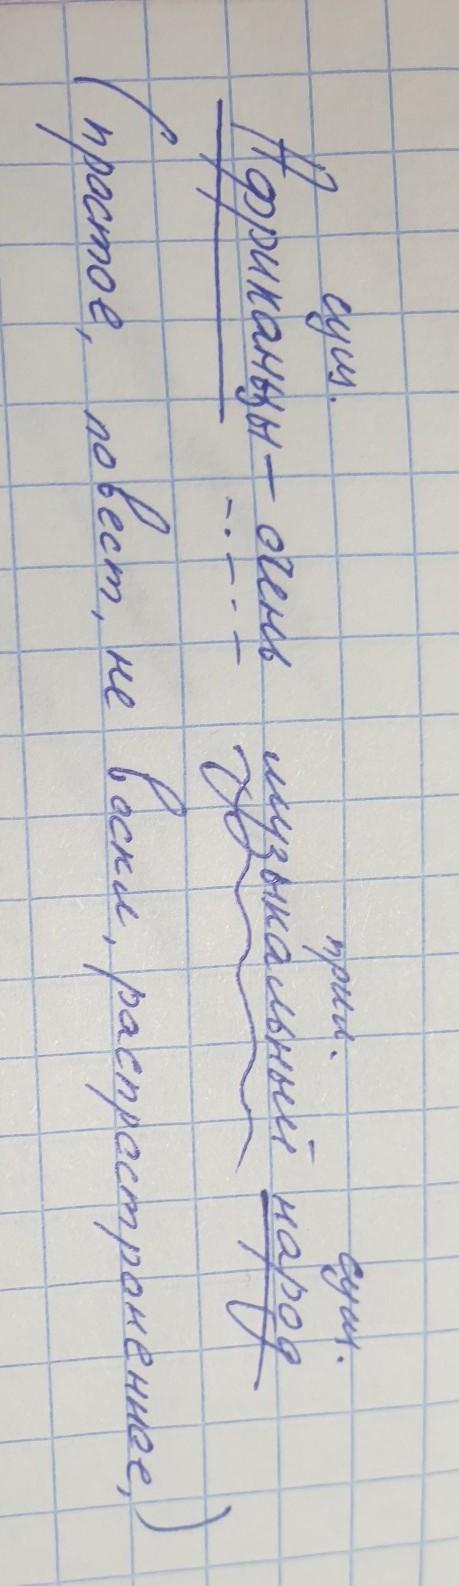 сущ. прил. сущ.
Африканцы – очень музыкальный народ
(простое, повест, не воскл, распространенное,)